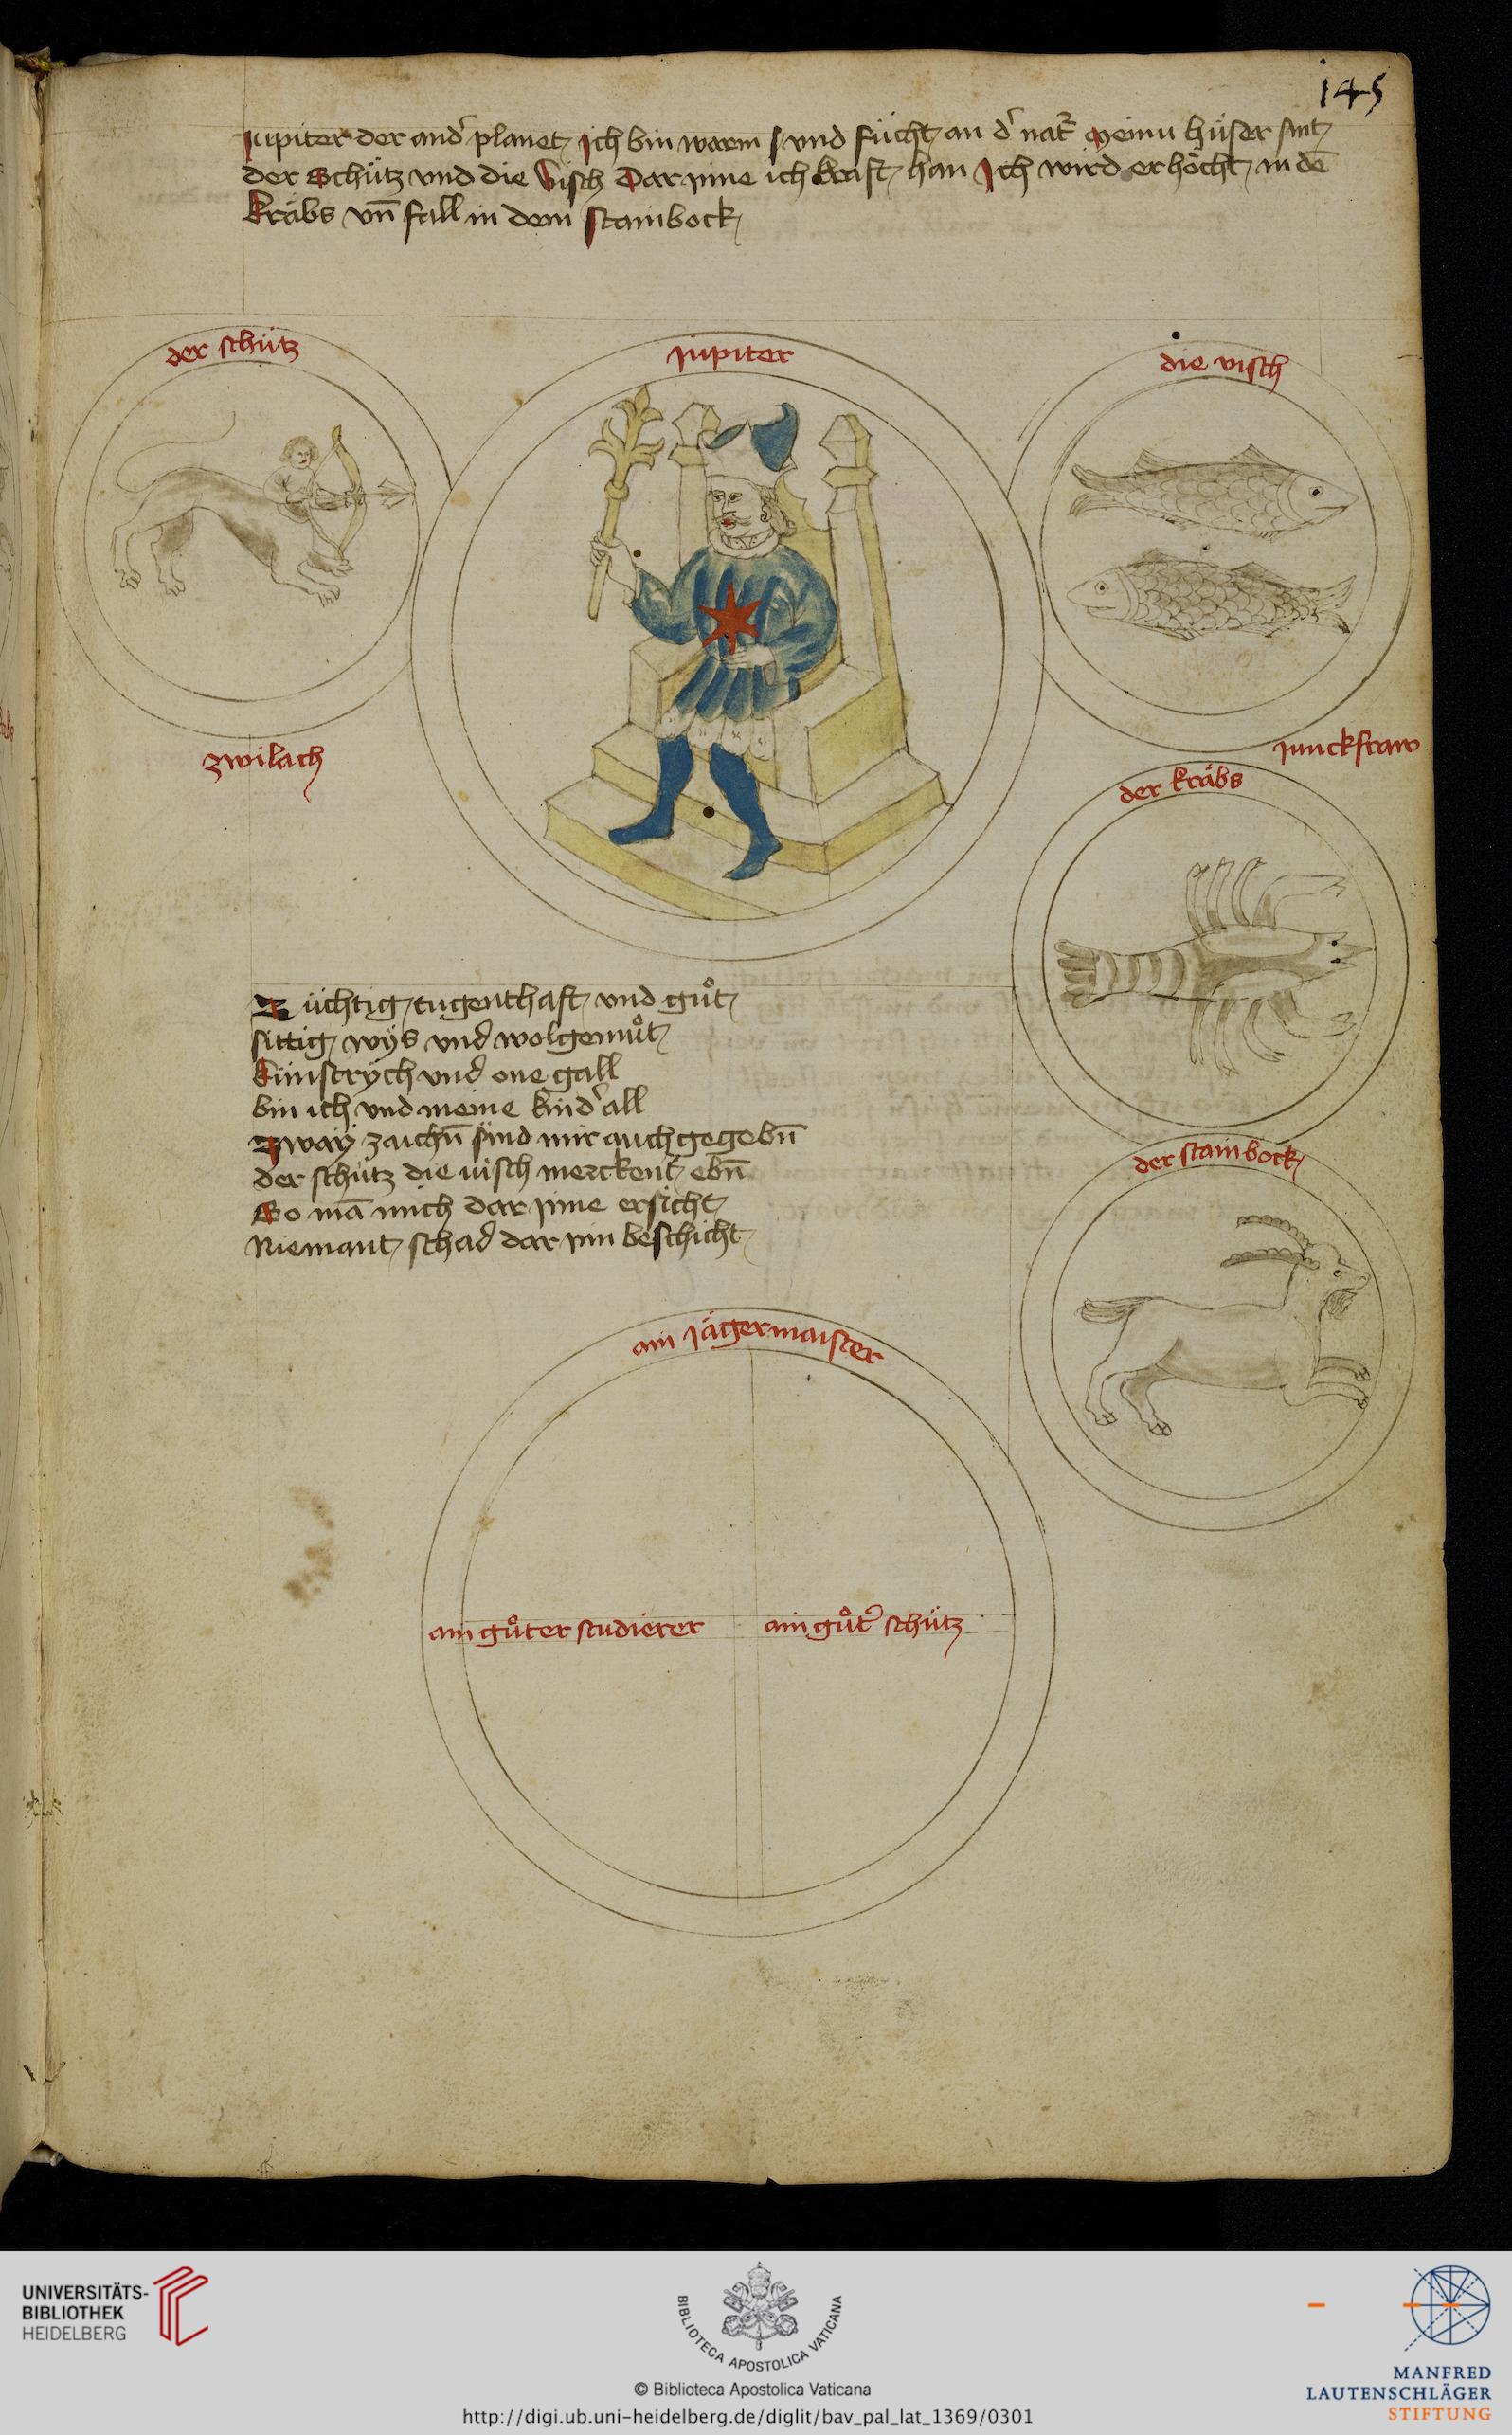 145
Jupiter der and̾ planet, Jch bin warm / vnd fücht, an d̾ nat̾ Meinu hüser sint,
der Schütz vnd die Visch Dar jnne ich kraft, han Jch wird er höcht, in dē
kräbs vn̄ fall in dem stainbock,
der schütz
Jupiter
die visch
zwilach
junckfraw
der kräbs
Züchtig, tugenthaft, vnd gůt,
sittig, wys vnd wolgemůt,
kunstrÿch vnd one gall
bin ich vnd meine kind̾ all
Zwaÿ zaichn̄ sind mir auch gegebn̄
der schütz die visch merckent, ebn̄
So mā mich dar jnne ersicht,
Niemant, schad dar jnn beschicht,
der stainbock,
ain Jägermaister
ain gůter studierer
ain gůt̾ schütz
UNIVERSITÄTS-
BIBLIOTHEK
HEIDELBERG
BIBLIOTECA APOSTOLICA VATICANA
© Biblioteca Apostolica Vaticana
http://digi.ub.uni-heidelberg.de/diglit/bav_pal_lat_1369/0301
MANFRED
LAUTENSCHLÄGER
STIFTUNG